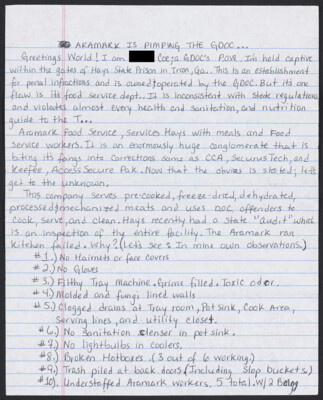 ARAMARK IS PIMPING THE GDOC...
Greetings World! I am Coe; a GDOC's P.O.W. I'm held captive
within the gates of Hays State Prison in Trion, Ga.. This is an establishment
for penal infractions and is owned/operated by the GDOC. But its one
flaw is its food service dept.. It is inconsistent with state regulations
and violates almost every health and sanitation, and nutrition
guide to the T...
Aramark Food Service, Services Hays with meals and Food
service workers. It is an enormously huge conglomerate that is
biting its fangs into Corrections same as CCA, SecurusTech, and
Keefee, Access Secure Pak. Now that the obvious is stated; lets
get to the unknown.
This company serves pre-cooked, freeze-dried, dehydrated,
processed, mechanized meats and uses DOC offenders to
Cook, serve, and clean. Hays recently had a State "audit" which
is an inspection of the entire facility. The Aramark ran
Kitchen failed. Why? (Lets see 2 in mine own observations.)
#1.) No Hairnets or face covers
#2.) No Gloves
#3.) Filthy Tray Machine. Grime filled. Toxic odor.
#4.) Molded and fungi lined walls
#5.) Clogged drains at Tray room, Pot sink, Cook Area,
Serving lines, and utility closet.
#6.) No sanitation clenser in pot sink.
#7.) No lightbulbs in coolers.
#8.) Broken Hotboxes. (3 out of 6 working.)
#9.) Trash piled at back doors (Including Slop buckets.)
#10). Understaffed Aramark workers. 5 Total. W/2 Being